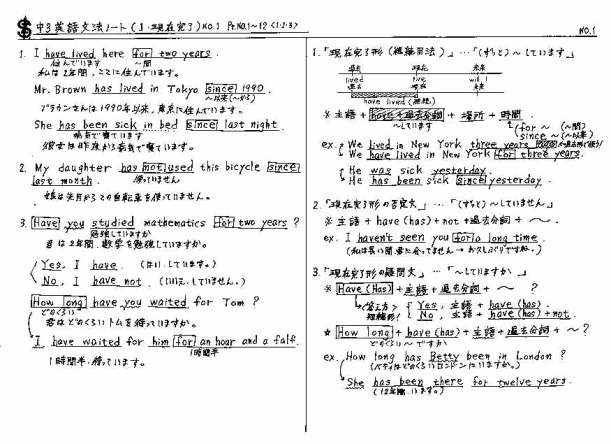 中3英語文法ノート(1・現在完了)NO.1 Pt.NO.1~12<1・2・3>
NO.1
1. I have lived here for two years.
住んでいます ~間
私は2年間、ここに住んでいます。
Mr. Brown has lived in Tokyo since 1990.
~以来(~から)
ブラウンさんは1990年以来、東京に住んでいます。
She has been sick in bed since last night.
病気で寝ています
彼女は昨夜から病気で寝ています。
2. My daughter has not used this bicycle since
last month.
使っていません
娘は先月からこの自転車を使っていません。
3. Have you studied mathematics for two years?
勉強していますか
君は2年間、数学を勉強していますか。
Yes, I have. (はい、しています。)
No, I have not. (いいえ、していません。)
How long have you waited for Tom?
どのくらい
君はどのくらいトムを待っていますか。
I have waited for him for an hour and a falf.
1時間半
1時間半、待っています。
1.「現在完了形(継続用法)」…「(ずっと)~しています。」
過去 現在 未来
lived live will l
have lived (継続)
※ 主語 + have+過去分詞 + 場所 + 時間
~しています
for ~ (~間)
since ~ (~以来)
ex. We lived in New York three years
We have lived in New York for three years.
He was sick yesterday.
He has been sick since yesterday.
2.「現在完了形の否定文」…「(ずっと)~していません」
※ 主語 + have(has) + not + 過去分詞 + ~.
ex. I haven't seen you for lo long time.
(私は長い間君に会ってません → お久しぶりですね。)
3.「現在完了形の疑問文」…「~していますか。」
※ Have(Has) + 主語 + 過去分詞 + ~ ?
<答え方> Yes, 主語 + have(has).
短縮形! No, 主語 + have(has) + not.
★ How long + have(has) + 主語 + 過去分詞 + ~?
どのくらい~ですか
ex. How long has Betty been in London?
(ベティはどのくらいロンドンにいますか。)
She has been there for twelve years.
(12年間、います。)